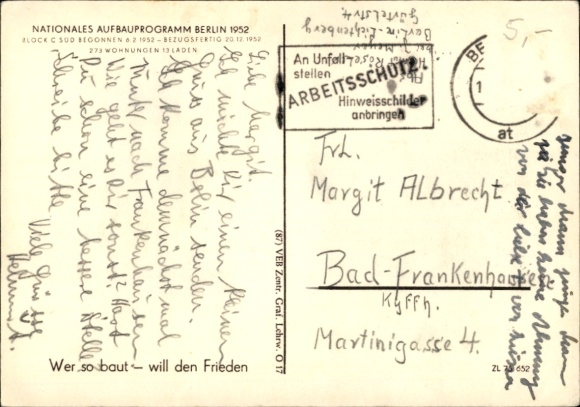 NATIONALES AUFBAUPROGRAMM BERLIN 1952
BLOCK C SÜD BEGONNEN 6.2.1952 – BEZUGSFERTIG 20.12.1952
273 WOHNUNGEN 13 LÄDEN
Liebe Margit.
Ich möchte Dir einen kleinen
Gruss aus Berlin senden.
Ich komme demnächst mal
nach Frankenhausen
Wie geht es Dir sonst? Hast
Du schon eine bessere Stelle
Schreibe bitte
Viele Grüsse
Helmut.
Wer so baut – will den Frieden
(87) VEB Zentr. Graf. Lehrw. O 17
Abs.
Helmut
bei Meyer
Berlin-Lichtenberg
Gürtelstr 4.
5,–
An Unfall-
stellen
ARBEITSSCHUTZ
Hinweisschilder
anbringen
BE
1
at
Frl.
Margit Albrecht
Bad-Frankenhausen
Kyffh.
Martinigasse 4.
ja Sie haben keine Ahnung
von der Liebe
ZL 75 652